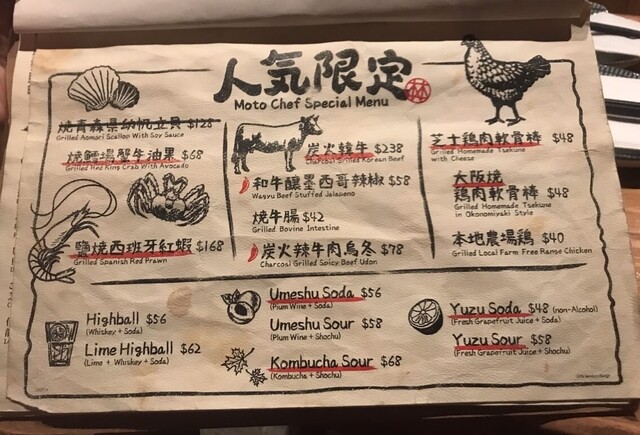 人気限定
林
Moto Chef Special Menu
焼青森県幼帆立貝 $128
Grilled Aomori Scallop With Soy Sauce
焼鱈場蟹牛油果 $68
Grilled Red King Crab With Avocado
鹽焼西班牙紅蝦 $168
Grilled Spanish Red Prawn
炭火辣牛 $238
Charcoal Grilled Korean Beef
和牛釀墨西哥辣椒 $58
Wagyu Beef Stuffed Jalapeno
焼牛腸 $42
Grilled Bovine Intestine
炭火辣牛肉烏冬 $78
Charcoal Grilled Spicy Beef Udon
芝士鶏肉軟骨棒 $48
Grilled Homemade Tsekune
with Cheese
大阪焼
鶏肉軟骨棒 $48
Grilled Homemade Tsekune
in Okonomiyaki Style
本地農場鶏 $40
Grilled Local Farm Free Range Chicken
Highball $56
(Whiskey + Soda)
Lime Highball $62
(Lime + Whiskey + Soda)
Umeshu Soda $56
(Plum Wine + Soda)
Umeshu Sour $58
(Plum Wine + Shochu)
Kombucha Sour $68
(Kombucha + Shochu)
Yuzu Soda $48 (non-Alcohol)
(Fresh Grapefruit Juice + Soda)
Yuzu Sour $58
(Fresh Grapefruit Juice + Shochu)